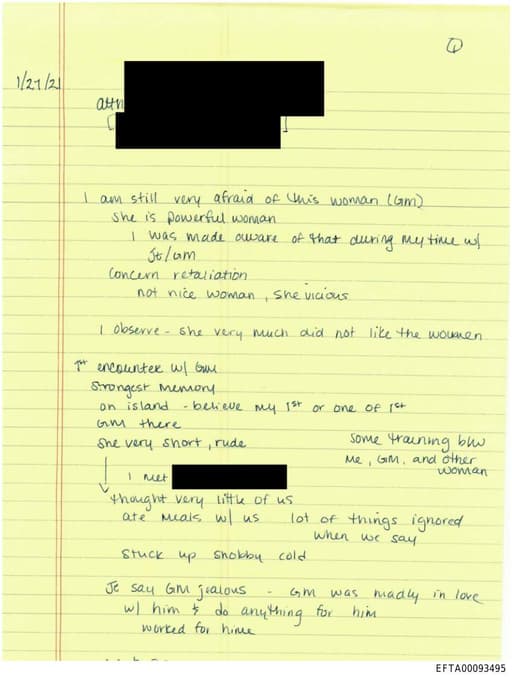 1/27/21
attn
[
]
I am still very afraid of this woman (GM)
She is powerful woman
I was made aware of that during my time w/
JE/GM
Concern retaliation
not nice woman, she vicious
I observe - she very much did not like the women
1st encounter w/ GM
Strongest memory
on island - believe my 1st or one of 1st
GM there
She very short, rude
some training b/w
me, GM, and other
woman
I met
thought very little of us
ate meals w/ us lot of things ignored
when we say
stuck up snobby cold
JE say GM jealous - GM was madly in love
w/ him & do anything for him
worked for hime
EFTA00093495